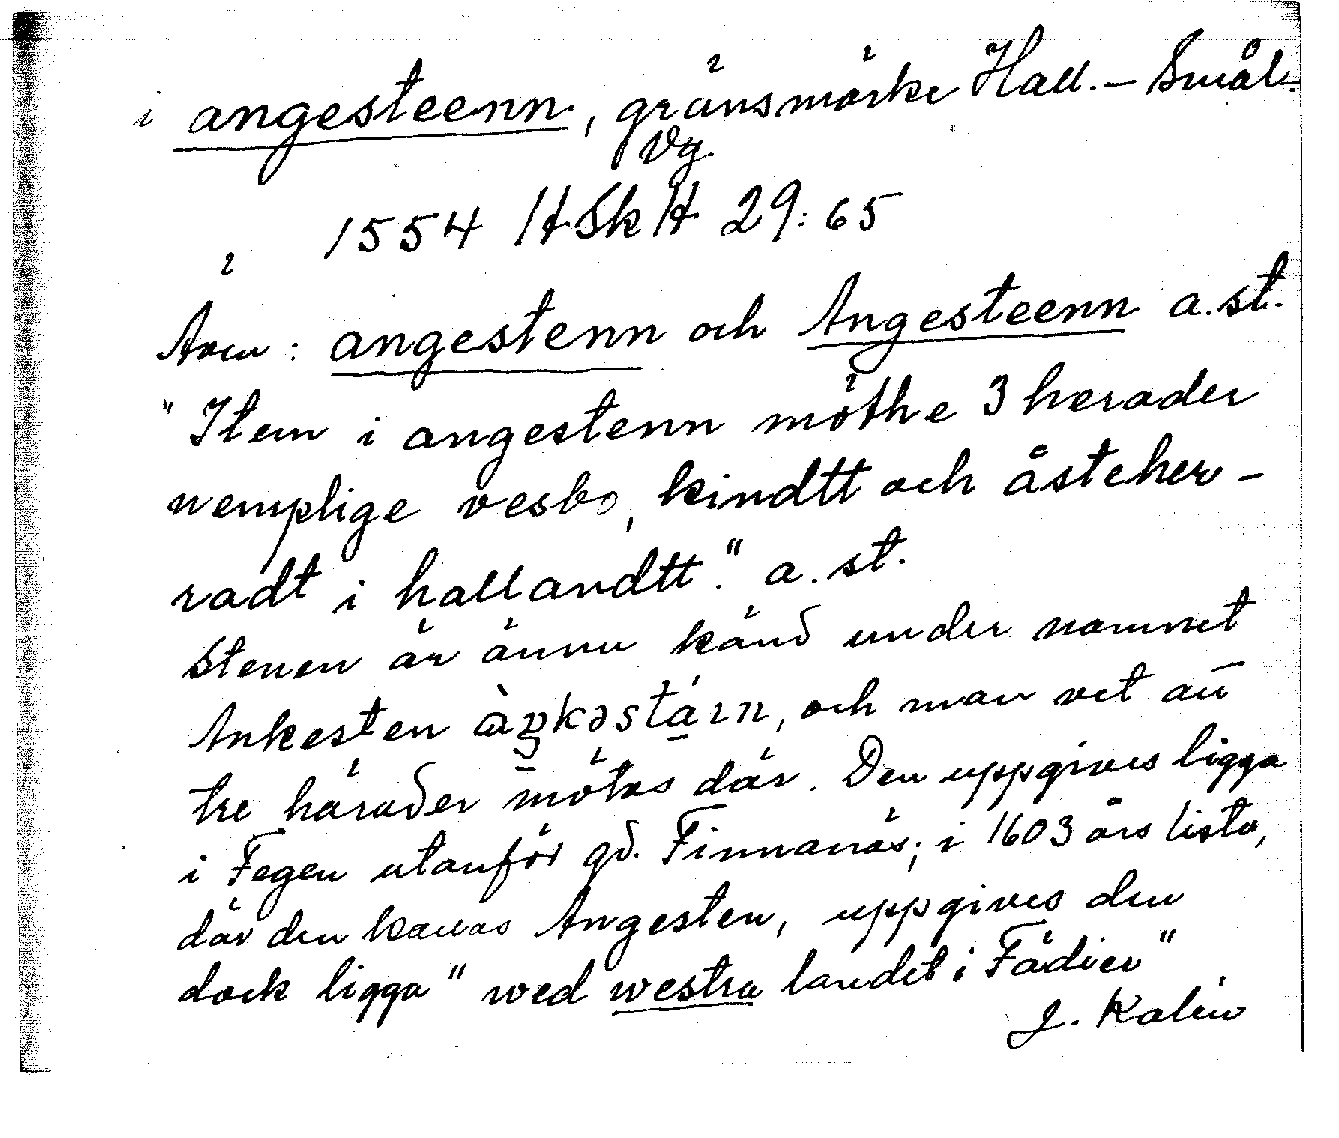 i angesteenn, gränsmärke Hall. – Smål.
Vg.
1554 HSkH 29:65
Även: angestenn och Angesteenn a.st.
"Item i angestenn möthe 3 herader
nemplige vesbo, kindtt och åsteher-
radt i hallandtt." a.st.
Stenen är ännu känd under namnet
Ankesten, och man vet att
tre härader mötas där. Den uppgives ligga
i Fegen utanför gd. Finnanäs; i 1603 års lista,
där den kallas Angesten, uppgives den
dock ligga "wed westra landet i Fädien"
J. Kalén